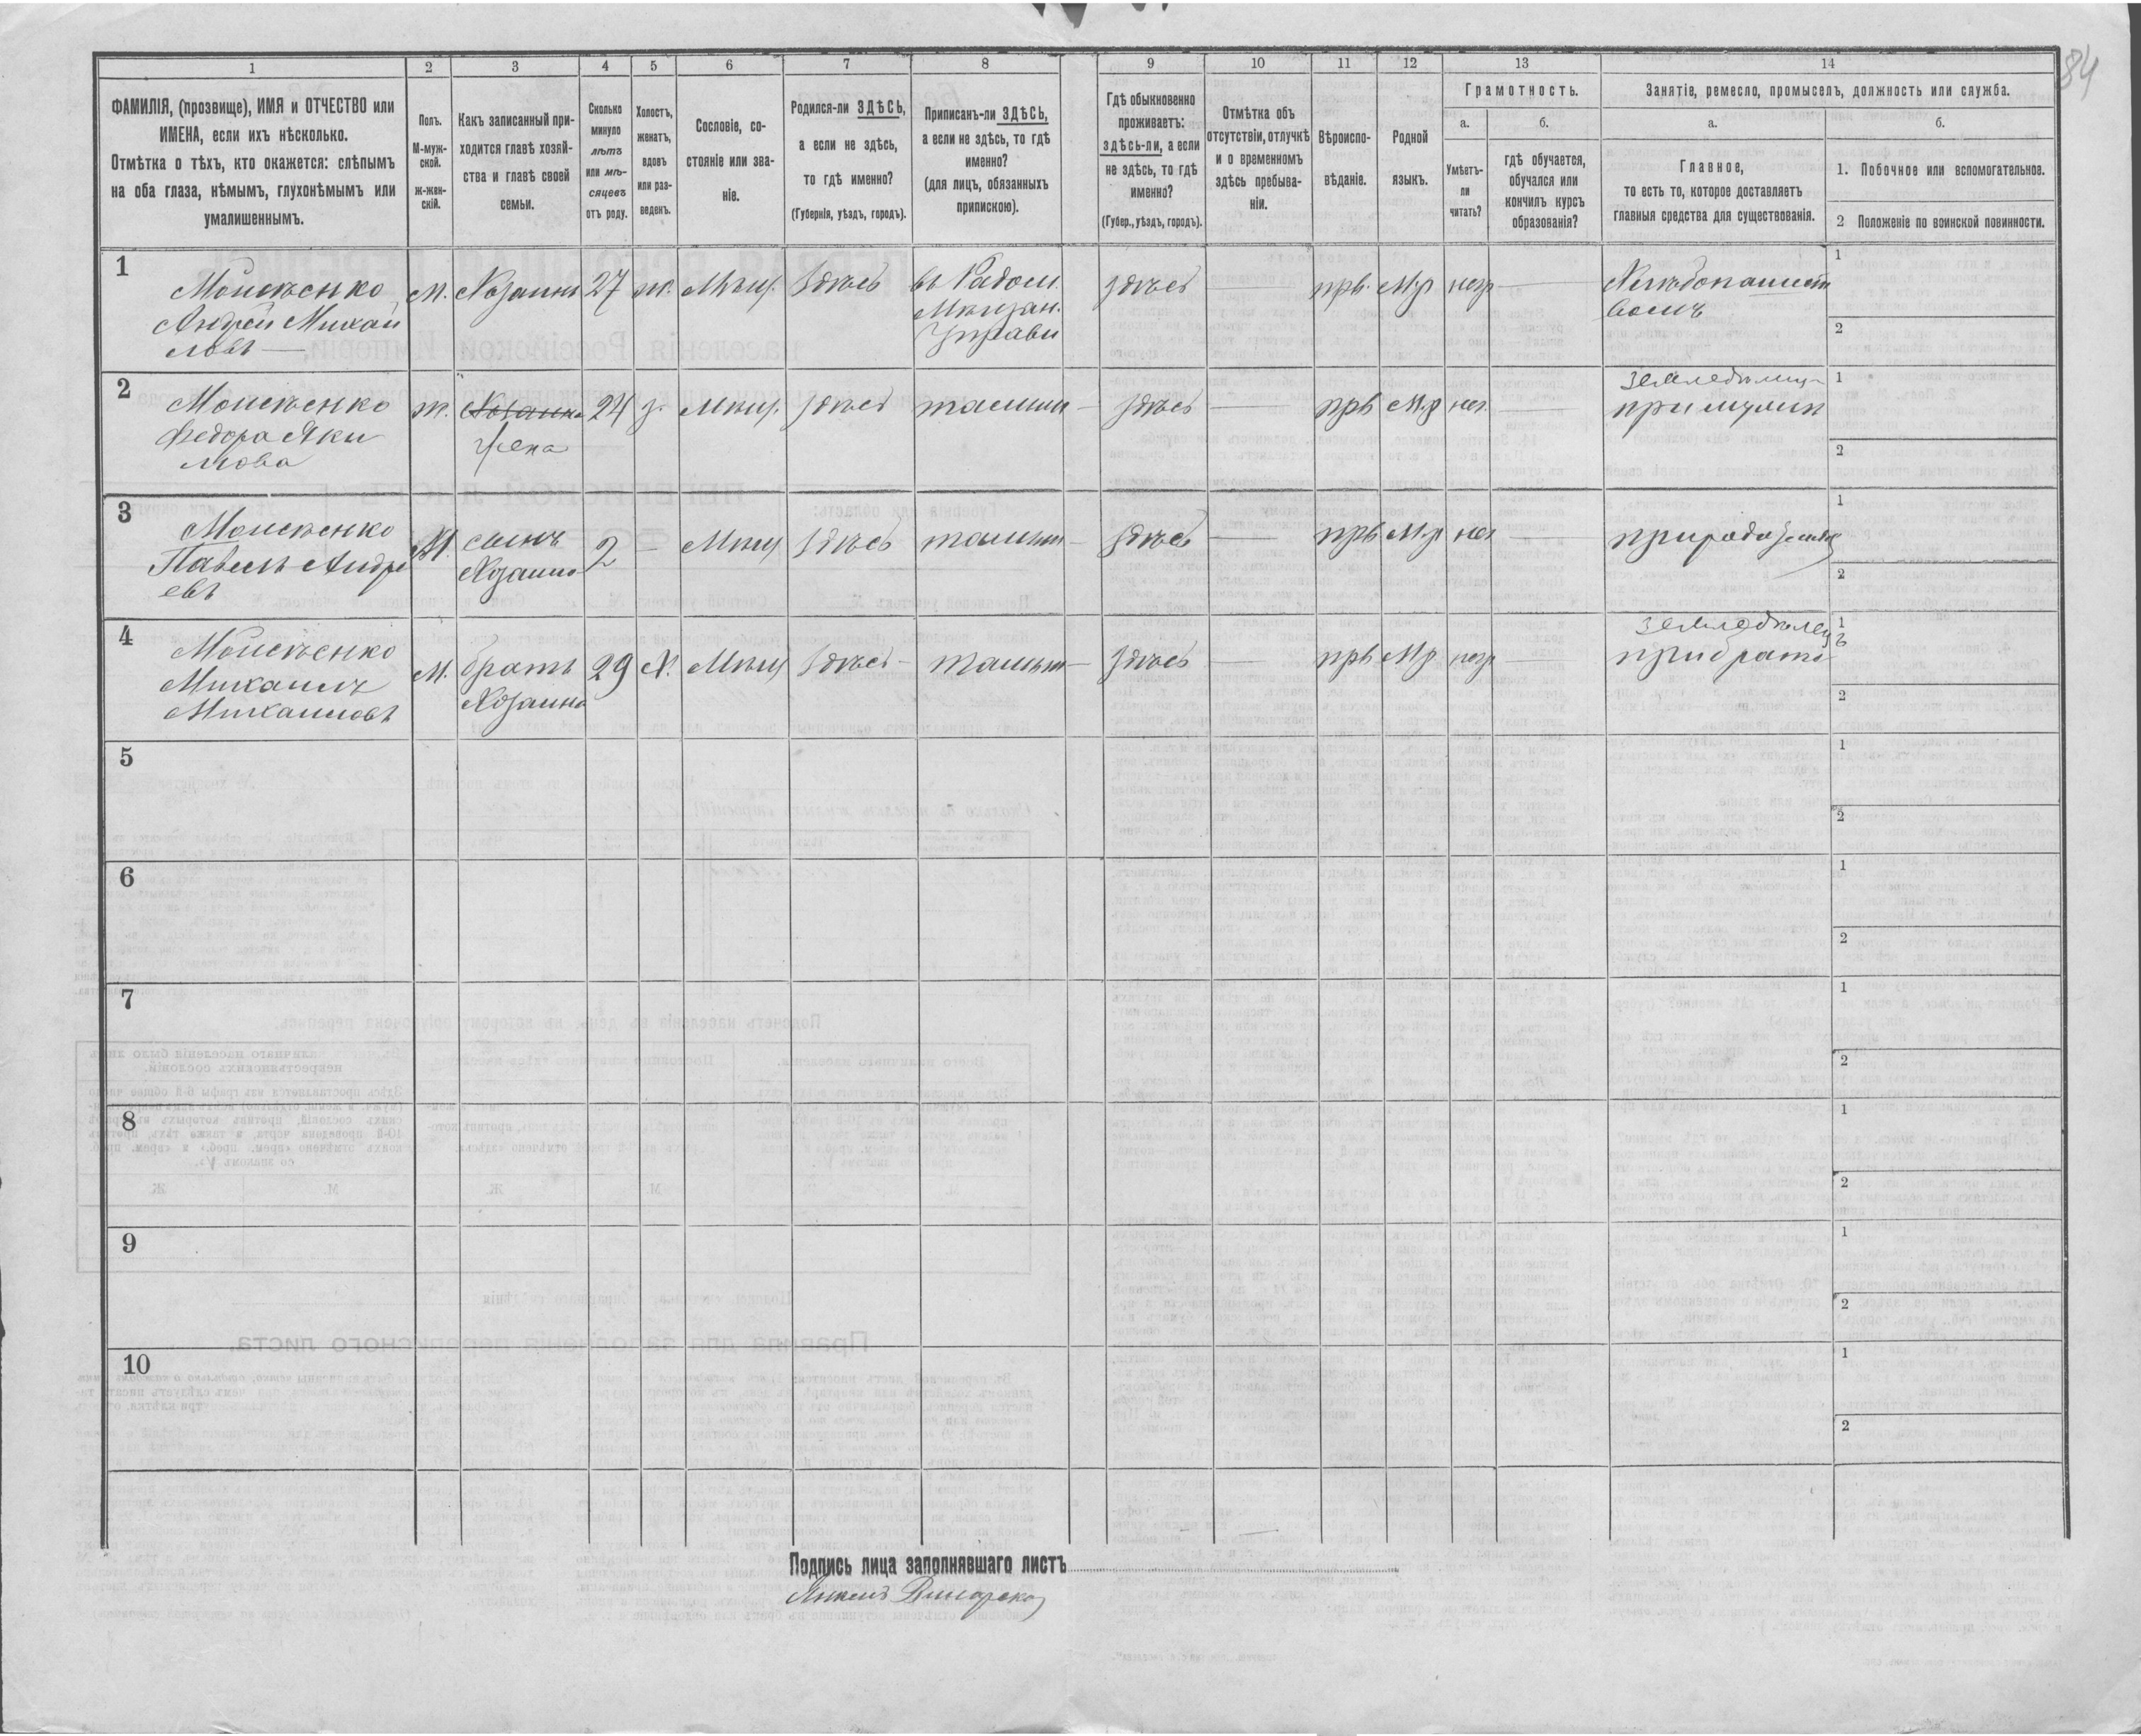 84
1 2 3 4 5 6 7 8 9 10 11 12 13 14
ФАМИЛІЯ, (прозвище), ИМЯ и ОТЧЕСТВО или
ИМЕНА, если ихъ нѣсколько.
Отмѣтка о тѣхъ, кто окажется: слѣпымъ
на оба глаза, нѣмымъ, глухонѣмымъ или
умалишеннымъ.
Полъ.
М-муж-
ской.
ж-жен-
скій.
Какъ записанный при-
ходится главѣ хозяй-
ства и главѣ своей
семьи.
Сколько
минуло
лѣтъ
или мѣ-
сяцевъ
отъ роду.
Холостъ,
женатъ,
вдовъ
или раз-
веденъ.
Сословіе, со-
стояніе или зва-
ніе.
Родился-ли ЗДѢСЬ,
а если не здѣсь,
то гдѣ именно?
(Губернія, уѣздъ, городъ).
Приписанъ-ли ЗДѢСЬ,
а если не здѣсь, то гдѣ
именно?
(для лицъ, обязанныхъ
припискою).
Гдѣ обыкновенно
проживаетъ:
здѣсь-ли, а если
не здѣсь, то гдѣ
именно?
(Губер., уѣздъ, городъ).
Отмѣтка объ
отсутствіи, отлучкѣ
и о временномъ
здѣсь пребыва-
ніи.
Вѣроиспо-
вѣданіе.
Родной
языкъ.
Грамотность.
а.
Умѣетъ-
ли
читать?
б.
гдѣ обучается,
обучался или
кончилъ курсъ
образованія?
Занятіе, ремесло, промыселъ, должность или служба.
а.
Главное,
то есть то, которое доставляетъ
главныя средства для существованія.
б.
1. Побочное или вспомогательное.
2 Положеніе по воинской повинности.
1
Моисѣенко
Андрей Михай
ловъ —
м. Хозяинъ 27 ж. Мѣщ. Здѣсь
въ Радом.
Мѣщан.
Управи
здѣсь — прв. Мр негр —
Хлѣбопашест
вомъ
1
2
2
Моисѣенко
Федора Яки
мова
ж. Хозяинъ
жена
24 з. Мѣщ. здѣсь тамъжъ — здѣсь — прв Мр нег. —
земледѣлец
при мужѣ
1
2
3
Моисѣенко
Павелъ Андре
евъ
М. сынъ
Хозяина
2 — Мѣщ здѣсь тамъжъ здѣсь — прв Мр нег —
1
2
4
Моисѣенко
Михаилъ
Михаиловъ
М. братъ
Хозяина
29 Х. Мѣщ Здѣсь — тамъжъ — здѣсь — прв Мр негр —
земледѣлецъ
при братѣ
1
2
5
1
2
6
1
2
7
1
2
8
1
2
9
1
2
10
1
2
Подпись лица заполнявшаго листъ